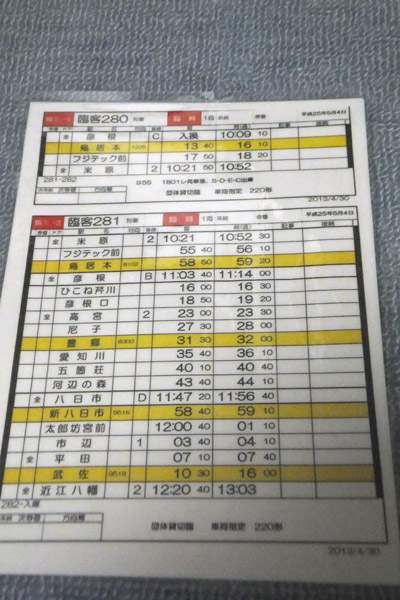 臨客280 臨時 1両 平成25年5月4日
停車 ドア 駅名 着 発(通) 記事
全 彦根 C 入換 10:09 10
鳥居本 13 40 16 10
フジテック前 17 50 18 20
全 米原 2 10:21 50 10:52
281-282
団体貸切臨 車両指定 220形
2013/4/30
臨客281 臨時 1両 平成25年5月4日
停車 ドア 駅名 着 発(通) 記事
全 米原 2 10:21 10:52 30
フジテック前 55 40 56 10
鳥居本 58 50 59 20
全 彦根 B 11:03 40 11:14 00
ひこね芹川 16 00 16 30
彦根口 18 50 19 20
全 高宮 2 23 00 23 30
尼子 27 30 28 00
豊郷 31 30 32 00
愛知川 35 40 36 10
五箇荘 40 10 40 40
河辺の森 43 40 44 10
全 八日市 D 11:47 20 11:56 40
新八日市 58 40 59 10
太郎坊宮前 12:00 40 01 10
市辺 1 03 40 04 10
全 平田 07 10 07 40
武佐 10 30 16 00
全 近江八幡 2 12:20 40 13:03
282-入庫
団体貸切臨 車両指定 220形
2013/4/30